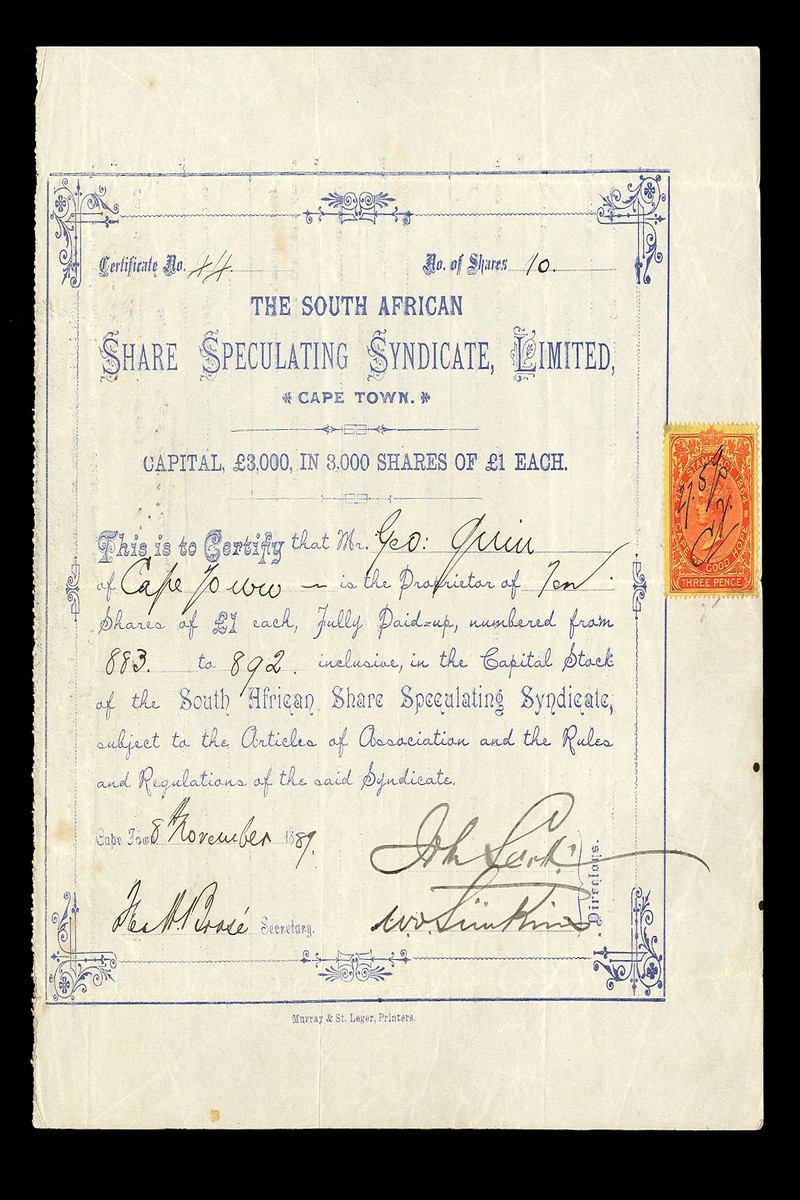 Certificate No. 44. No. of Shares 10.
THE SOUTH AFRICAN
SHARE SPECULATING SYNDICATE, LIMITED,
CAPE TOWN.
CAPITAL, £3,000, IN 3,000 SHARES OF £1 EACH.
This is to Certify that Mr. Geo: Quin
of Cape Town is the Proprietor of Ten
Shares of £1 each, Fully Paid=up, numbered from
883. to 892. inclusive, in the Capital Stock
of the South African Share Speculating Syndicate,
subject to the Articles of Association and the Rules
and Regulations of the said Syndicate.
Cape Town 8 November 1889.
Directors.
Secretary.
Murray & St. Leger, Printers.
STAMP ACT 1864
CAPE OF GOOD HOPE
THREE PENCE